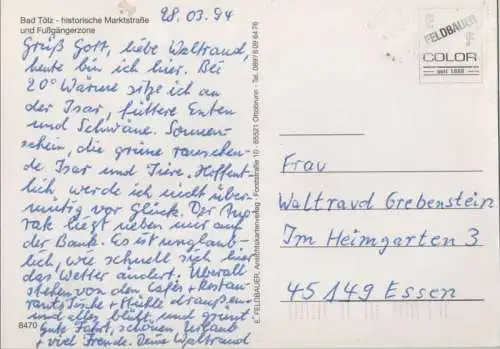 Bad Tölz - historische Marktstraße
und Fußgängerzone
28.03.94
Grüß Gott, liebe Waltraud,
heute bin ich hier. Bei
20° Wärme sitze ich an
der Isar, füttere Enten
und Schwäne. Sonnen-
schein, die grüne rauschen-
de Isar und Tiere. Hoffent-
lich werde ich nicht über-
mütig vor Glück. Der
liegt neben mir auf
der Bank. Es ist unglaub-
lich, wie schnell sich hier
das Wetter ändert. Überall
stehen vor den Cafés + Restau-
rants Tische + Stühle draußen
und alles blüht und grünt
gute Fahrt, schönen Urlaub
+ viel Freude. Deine Waltraud
8470
E. FELDBAUER, Ansichtskartenverlag - Forststraße 10 - 85521 Ottobrunn - Tel. 089/6 09 64 76
FELDBAUER
COLOR
seit 1888
Frau
Waltraud Grebenstein
Im Heimgarten 3
45149 Essen